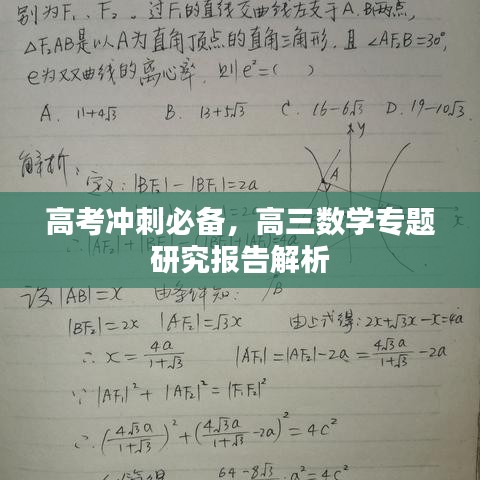 别为F₁、F₂。过F₁的直线交曲线左支于A、B两点,
△F₂AB是以A为直角顶点的直角三角形,且∠AF₂B=30°,
e为双曲线的离心率,则e²=( )
A. 11+4√3 B. 13+5√3 C. 16-6√3 D. 19-10√3
y
解析:
A
定义:|BF₂|-|BF₁|=2a
高考冲刺必备,高三数学专题
研究报告解析
设|AB|=x 由条件知: B
|BF₂|=2x |AF₂|=√3x 由上式得:2x+√3x-x=4a
∴x=4a/(1+√3) |AF₁|=|AF₂|-2a=4√3a/(1+√3)-2a
∵|AF₁|²+|AF₂|²=|F₁F₂|²
∴(4√3a/(1+√3))²+(4√3a/(1+√3)-2a)²=4c²
64-8√3 a²=4c²